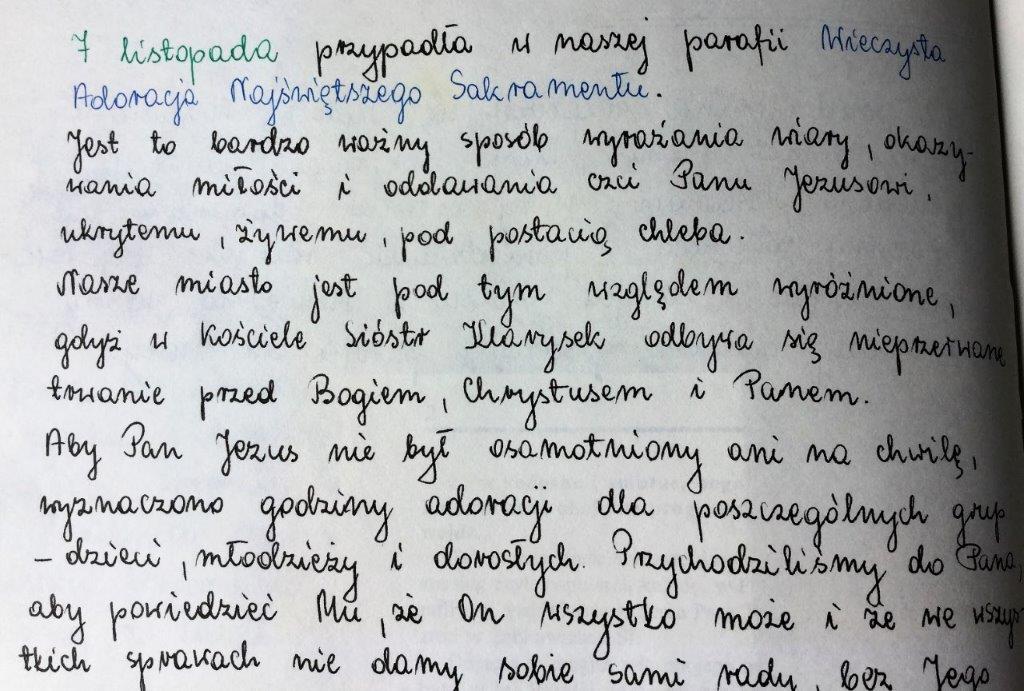 7 listopada przypadła w naszej parafii Wieczysta
Adoracja Najświętszego Sakramentu.
Jest to bardzo ważny sposób wyrażania wiary, okazy-
wania miłości i oddawania czci Panu Jezusowi,
ukrytemu, żywemu, pod postacią chleba.
Nasze miasto jest pod tym względem wyróżnione,
gdyż w Kościele Sióstr Klarysek odbywa się nieprzerwane
trwanie przed Bogiem, Chrystusem i Panem.
Aby Pan Jezus nie był osamotniony ani na chwilę,
wyznaczono godziny adoracji dla poszczególnych grup
– dzieci, młodzieży i dorosłych. Przychodziliśmy do Pana,
aby powiedzieć Mu, że On wszystko może i że we wszys-
tkich sprawach nie damy sobie sami rady, bez Jego